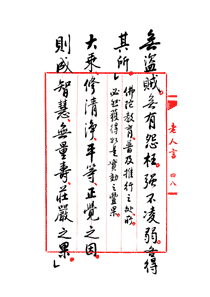 無盜賊。無有怨枉。強不凌弱。各得
其所。」
佛陀教育普及推行之處所
必然獲得如是實勤之豐果。
大乘修清淨平等正覺之因
則成智慧、無量壽、莊嚴之果。」
老人言 四八